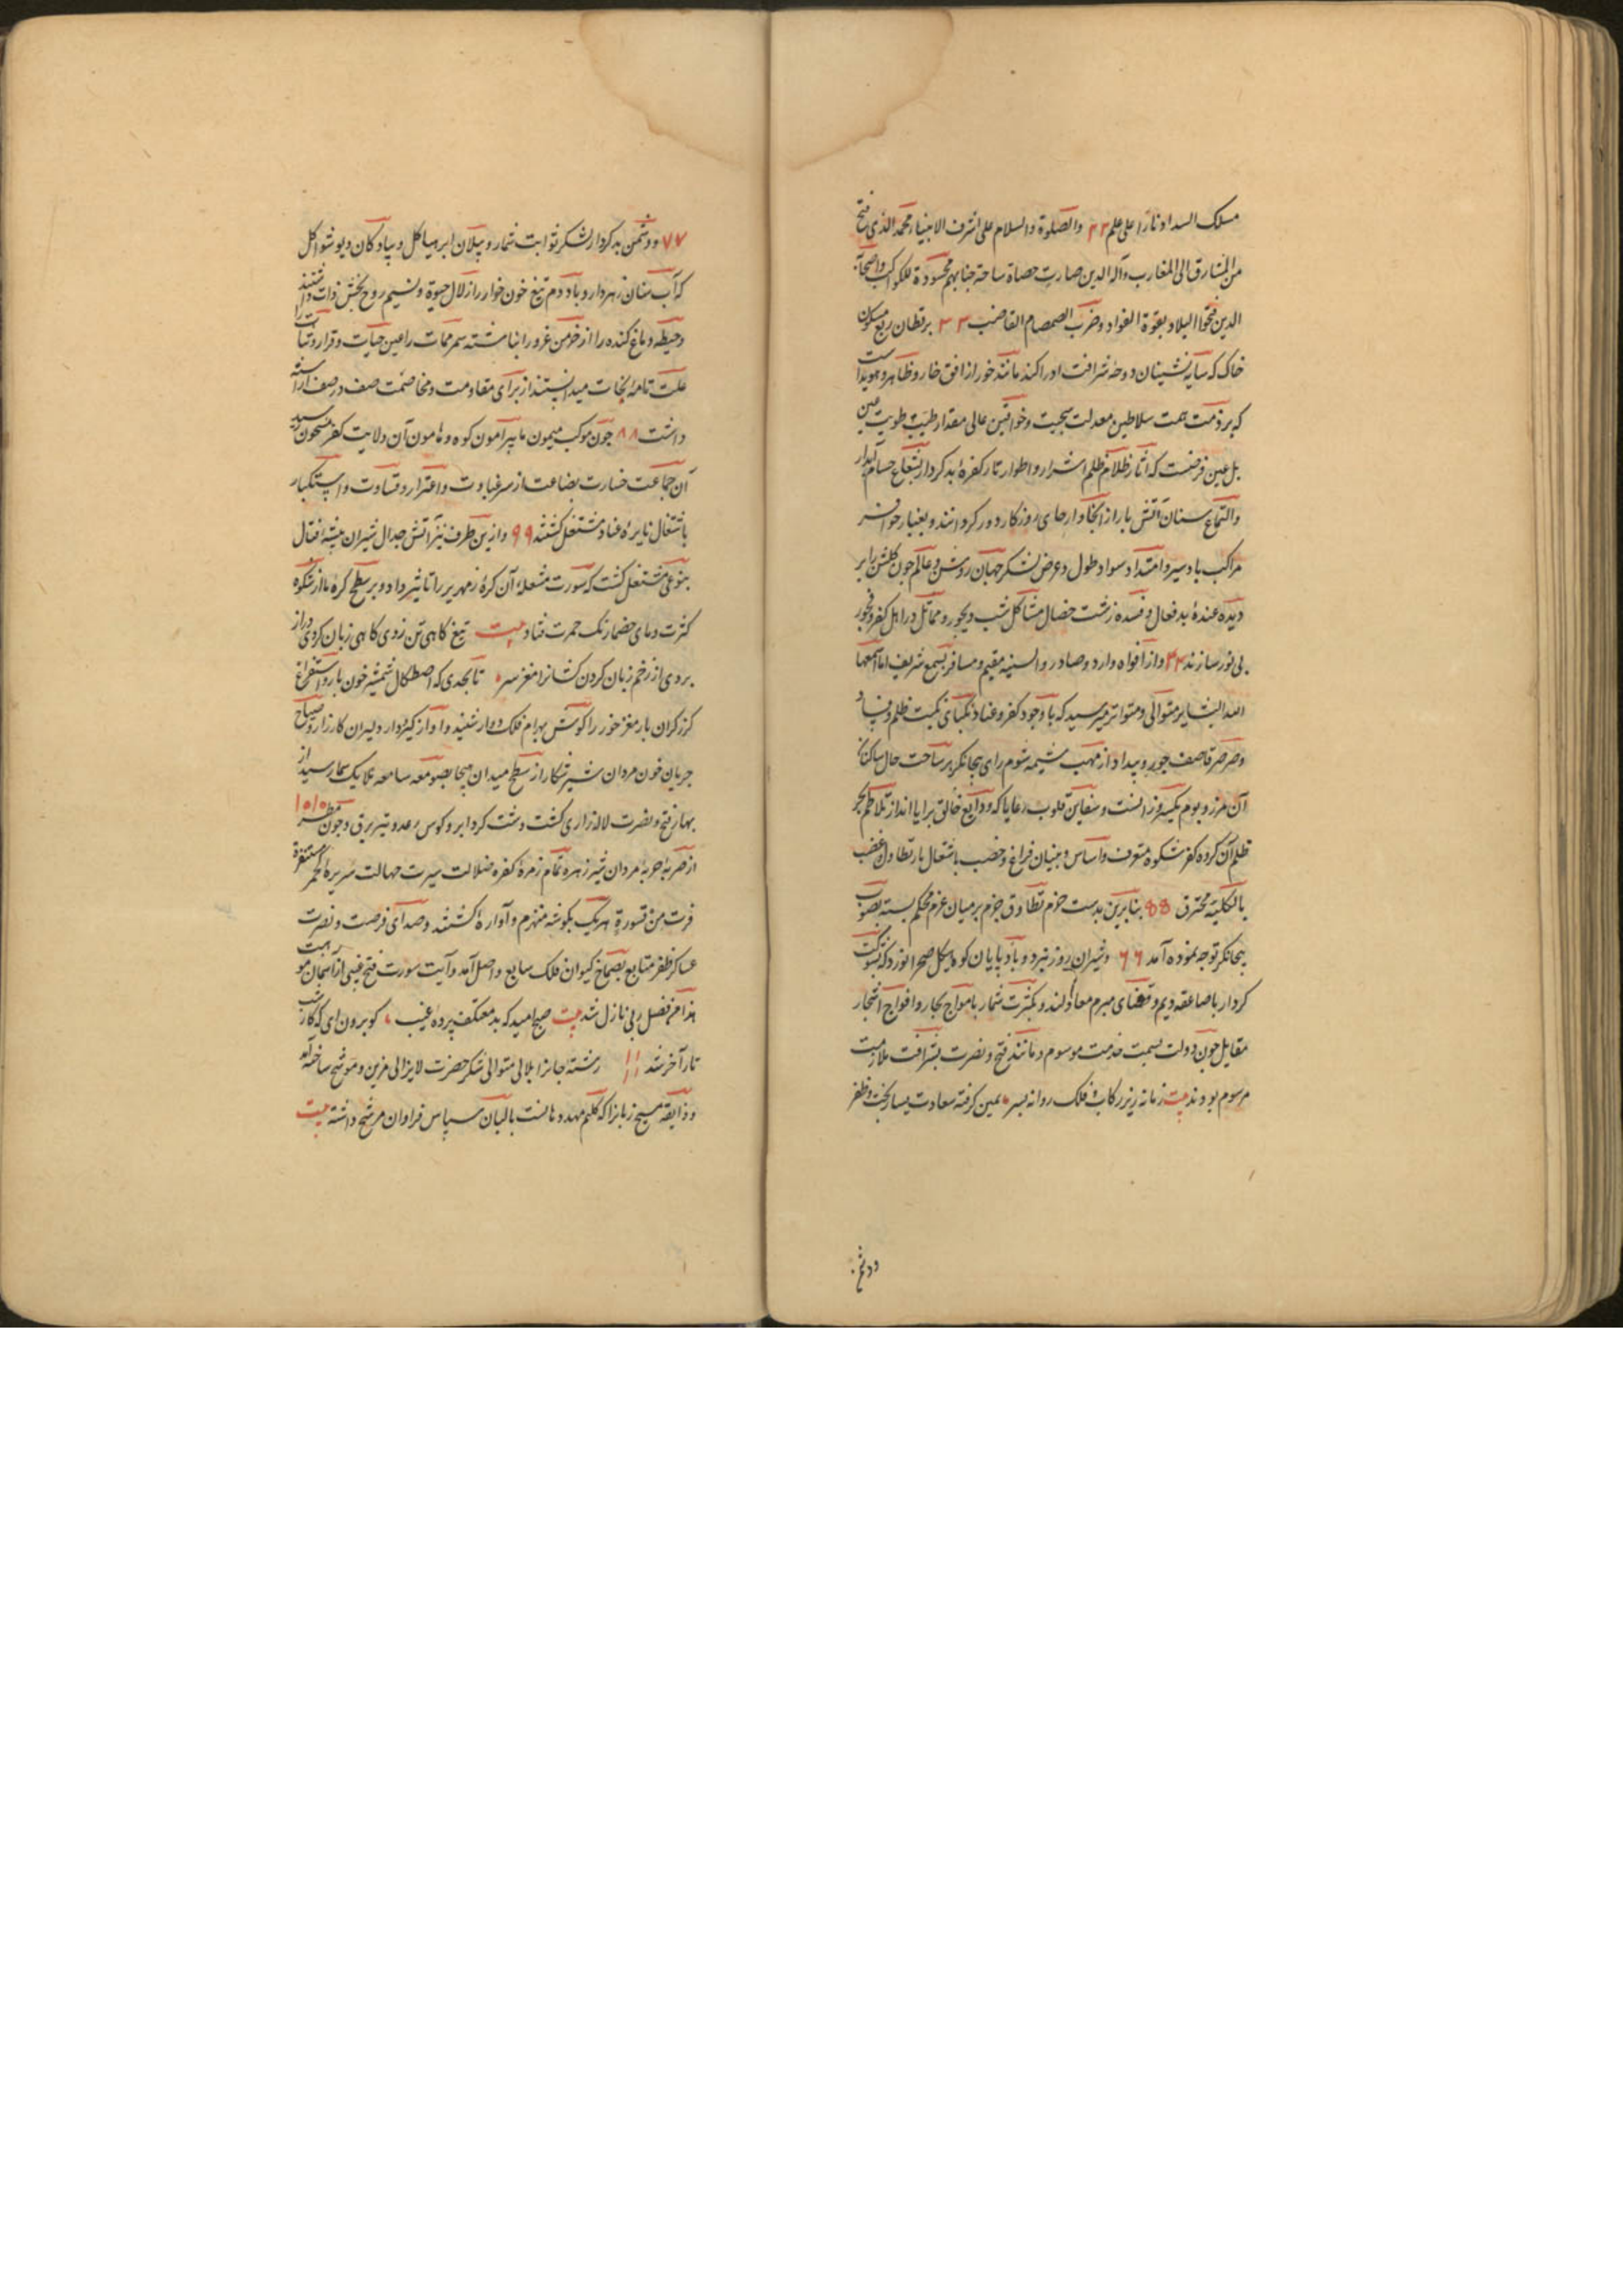 مسلک السداد نارا علی علم ۲۲ والصلوة والسلام علی اشرف الانبیاء محمد الذی فتح
من المشارق الی المغارب وآله الدین صارت حصاة ساحة جنابهم محسودة للکواکب واصحابه
الدین فتحوا البلاد بقوة الفواد وضرب الصمصام القاضب ۳۳ برقطان ربع مسکون
خاک که سایه نشینان دوحه شرافت ادراکند مانند خور از افق خاور ظاهر وهویداست
که بر ذمت همت سلاطین معدلت سجیت وخواقین عالی مقدار طیب طویت عین
بل عین فرضست که آثار ظلام ظلم اشرار واطوار تار کفره بدکردار بشعاع حسام آبدار
والتماع سنان آتش بار از انحا وارجای روزکار دور کردانند وبغبار حوافر
مراکب باد سیر وامتداد سواد طول وعرض لشکر جهان روشن وعالم چون کلشن را بر
دیده عنده بد فعال وفسده زشت خصال مشاکل شب دیجور ومماثل در اهل کفر وفجور
بی نور سازند ۴۴ واز افواه وارد وصادر والسنه مقیم ومسافر بسمع شریف
الله البشایر متوالی ومتواتر میرسید که با وجود کفر وعناد نکبای نکبت ظلم وفساد
وصرصر قاصف جور وبیداد از مهب شیمه شوم رای بیجانکر بر ساحت حال ساکنان
آن مرز وبوم وزانست وسفاین قلوب رعایا که ودایع خالق برایااند از تلاطم بحر
ظلم آن کروه کفر شکوه مغرق واساس وبنیان فراغ وخصب باشتعال نار تطاول وغضب
بالکلیه محترق ۵۵ بنابرین بدست حزم نطاق جزم بر میان عزم محکم بسته بصوب
بیجانکر توجه نموده آمد ۶۶ وشیران روز نبرد وباد پایان کوه هیکل صحرا نورد که بسرعت
کردار با صاعقه دیم وقضای مبرم معادلند وبکثرت شمار بامواج بحار وافواج اشجار
مقابل چون دولت بسمت خدمت موسوم ومانند فتح ونصرت بشرافت ملازمت
مرسوم بودند بیت زمانه زیر رکاب فلک روانه بسر یمین کرفته سعادت یسار بخت وظفر
ودشم
۷۷ ودشمن بدکردار لشکر ثوابت شمار وپیلان ابر هیاکل وپیادکان دیو شواکل
که آب سنان زهردار وباد دم تیغ خون خوار را زلال حیوة ونسیم روح بخش ذات دانستند
وحیطه دماغ کنده را از خرمن غرور انباشته سمر ممات را عین حیات وقرار وثبات را
علت تامه نجات میدانستند از برای مقاومت ومخاصمت صف در صف آراسته
داشت ۸۸ چون موکب میمون ما پیرامون کوه وهامون آن ولایت کفر مشحون رسید
آن جماعت خسارت بضاعت از سر غباوت واغترار وقساوت واستکبار
باشتعال نایره عناد مشتغل کشتند ۹۹ وازین طرف نیز آتش جدال شیران بیشه قتال
بنوعی مشتعل کشت که سورت مشعله آن کره زمهریر را تاثیر داد وبر سطح کره ما از شکوه
کثرت دمای خصمان رنک حمرت فتاد بیت تیغ کاهی تن زدی کاهی زبان کردی دراز
بردی از زخم زبان کردن کشانرا مغز سر تا بحدی که اصطکاک شمشیر خون بار واستفراغ
کرز کران بار مغز خور را کوش بهرام فلک دوار شنید وآواز کیرودار دلیران کارزار وصیاح
جریان خون مردان شیر شکار از سطح میدان هیجا بصومعه سامعه ملایک سما رسید از
بهار فتح ونصرت لاله زاری کشت ودشت کرد ابر وکوس رعد وتیر برق وخون مطر ۱۰۱۰
از ضربه حربه مردان شیر زهره تمام زمره کفره ضلالت سیرت جهالت سریره حمر مستنفرة
فرت من قسورة هریک بکوشه منهزم وآواره کشتند وصدای فرصت ونصرت
عساکر ظفر متابع بصماخ کیوان فلک سابع واصل آمد وآیت سورت فتح غیبی از آسمان موهبت
هذا من فضل ربی نازل شد بیت صبح امید که بد معتکف پرده غیب کو برون آی که کار شب
تار آخر شد ۱۱ ۱۱ رشته جانرا بلالی متوالی شکر حضرت لایزالی مزین وموشح ساخته آمد
وذایقه مسیح زبانرا که کلیم مهد دهانست بالبان سپاس فراوان مرشح داشته بیت